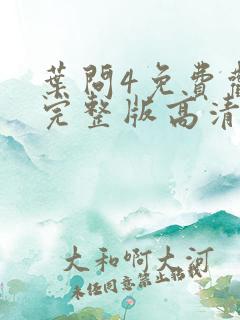 葉問4免費
完整版高清
大和啊大河
未經同意禁止轉載